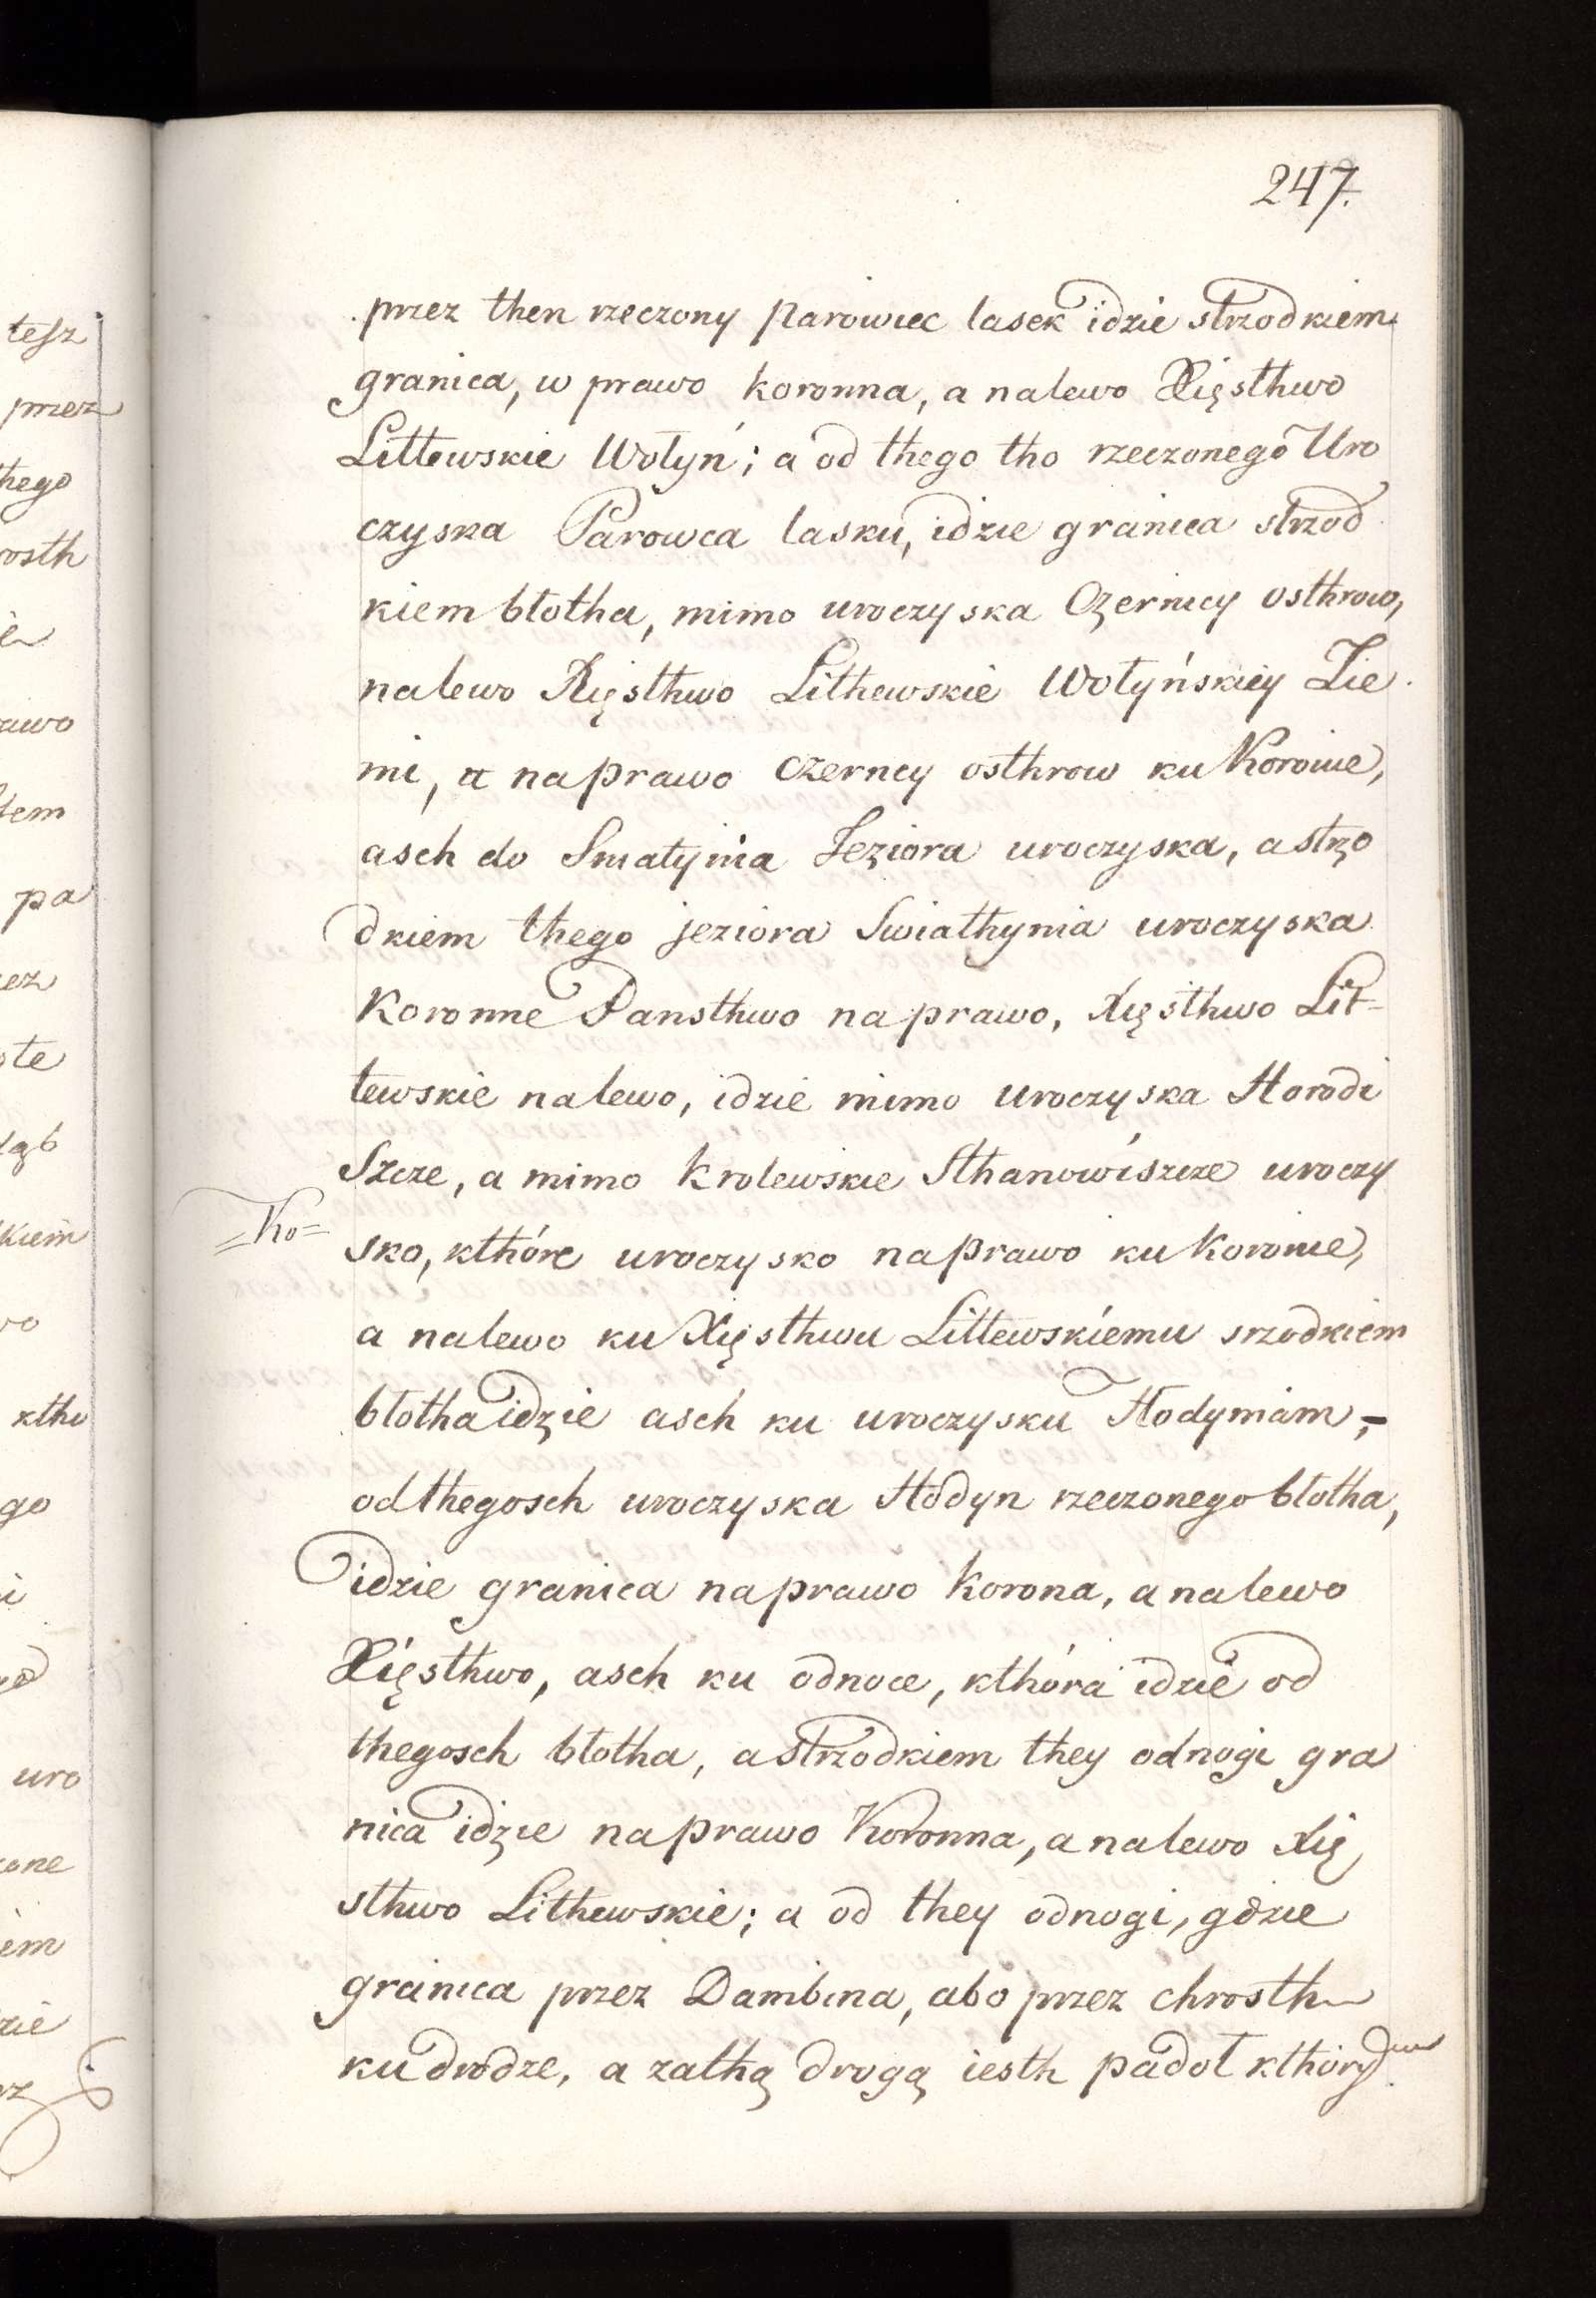 247.
przez then rzeczony parowiec lasek idzie strzodkiem
granica, w prawo koronna, a nalewo Xięsthwo
Littewskie Wołyń; a od thego tho rzeczonego Uro
czyska Parowca lasku, idzie granica strzod
kiem błotha, mimo uroczyska Czernicy osthrow,
nalewo Xięsthwo Lithewskie Wołyńskiey Zie
mi, a naprawo Czerncy osthrow ku Koronie,
asch do Smatynia Jeziora uroczyska, a strzo
dkiem thego jeziora Swiathynia uroczyska
Koronne Pansthwo naprawo, Xięsthwo Lit=
tewskie nalewo, idzie mimo uroczyska Horodi
Szcze, a mimo krolewskie Sthanowiszcze uroczy
=Ko= sko, kthóre uroczysko naprawo ku koronie,
a nalewo ku Xięsthwu Littewskiemu srzodkiem
błotha idzie asch ku uroczysku Hodyniam,-
od thegosch uroczyska Hodyn rzeczonego błotha,
idzie granica naprawo korona, a nalewo
Xięsthwo, asch ku odnoce, kthóra idzie od
thegosch błotha, a strzodkiem they odnogi gra
nica idzie naprawo Koronna, a nalewo Xię
sthwo Lithewskie; a od they odnogi, gdzie
granica przez Dambina, abo przez chrosth
ku drodze, a zathą drogą iesth padoł kthory
tesz
przez
thego
rosth
awo
pa
kiem
kthu
go
uro